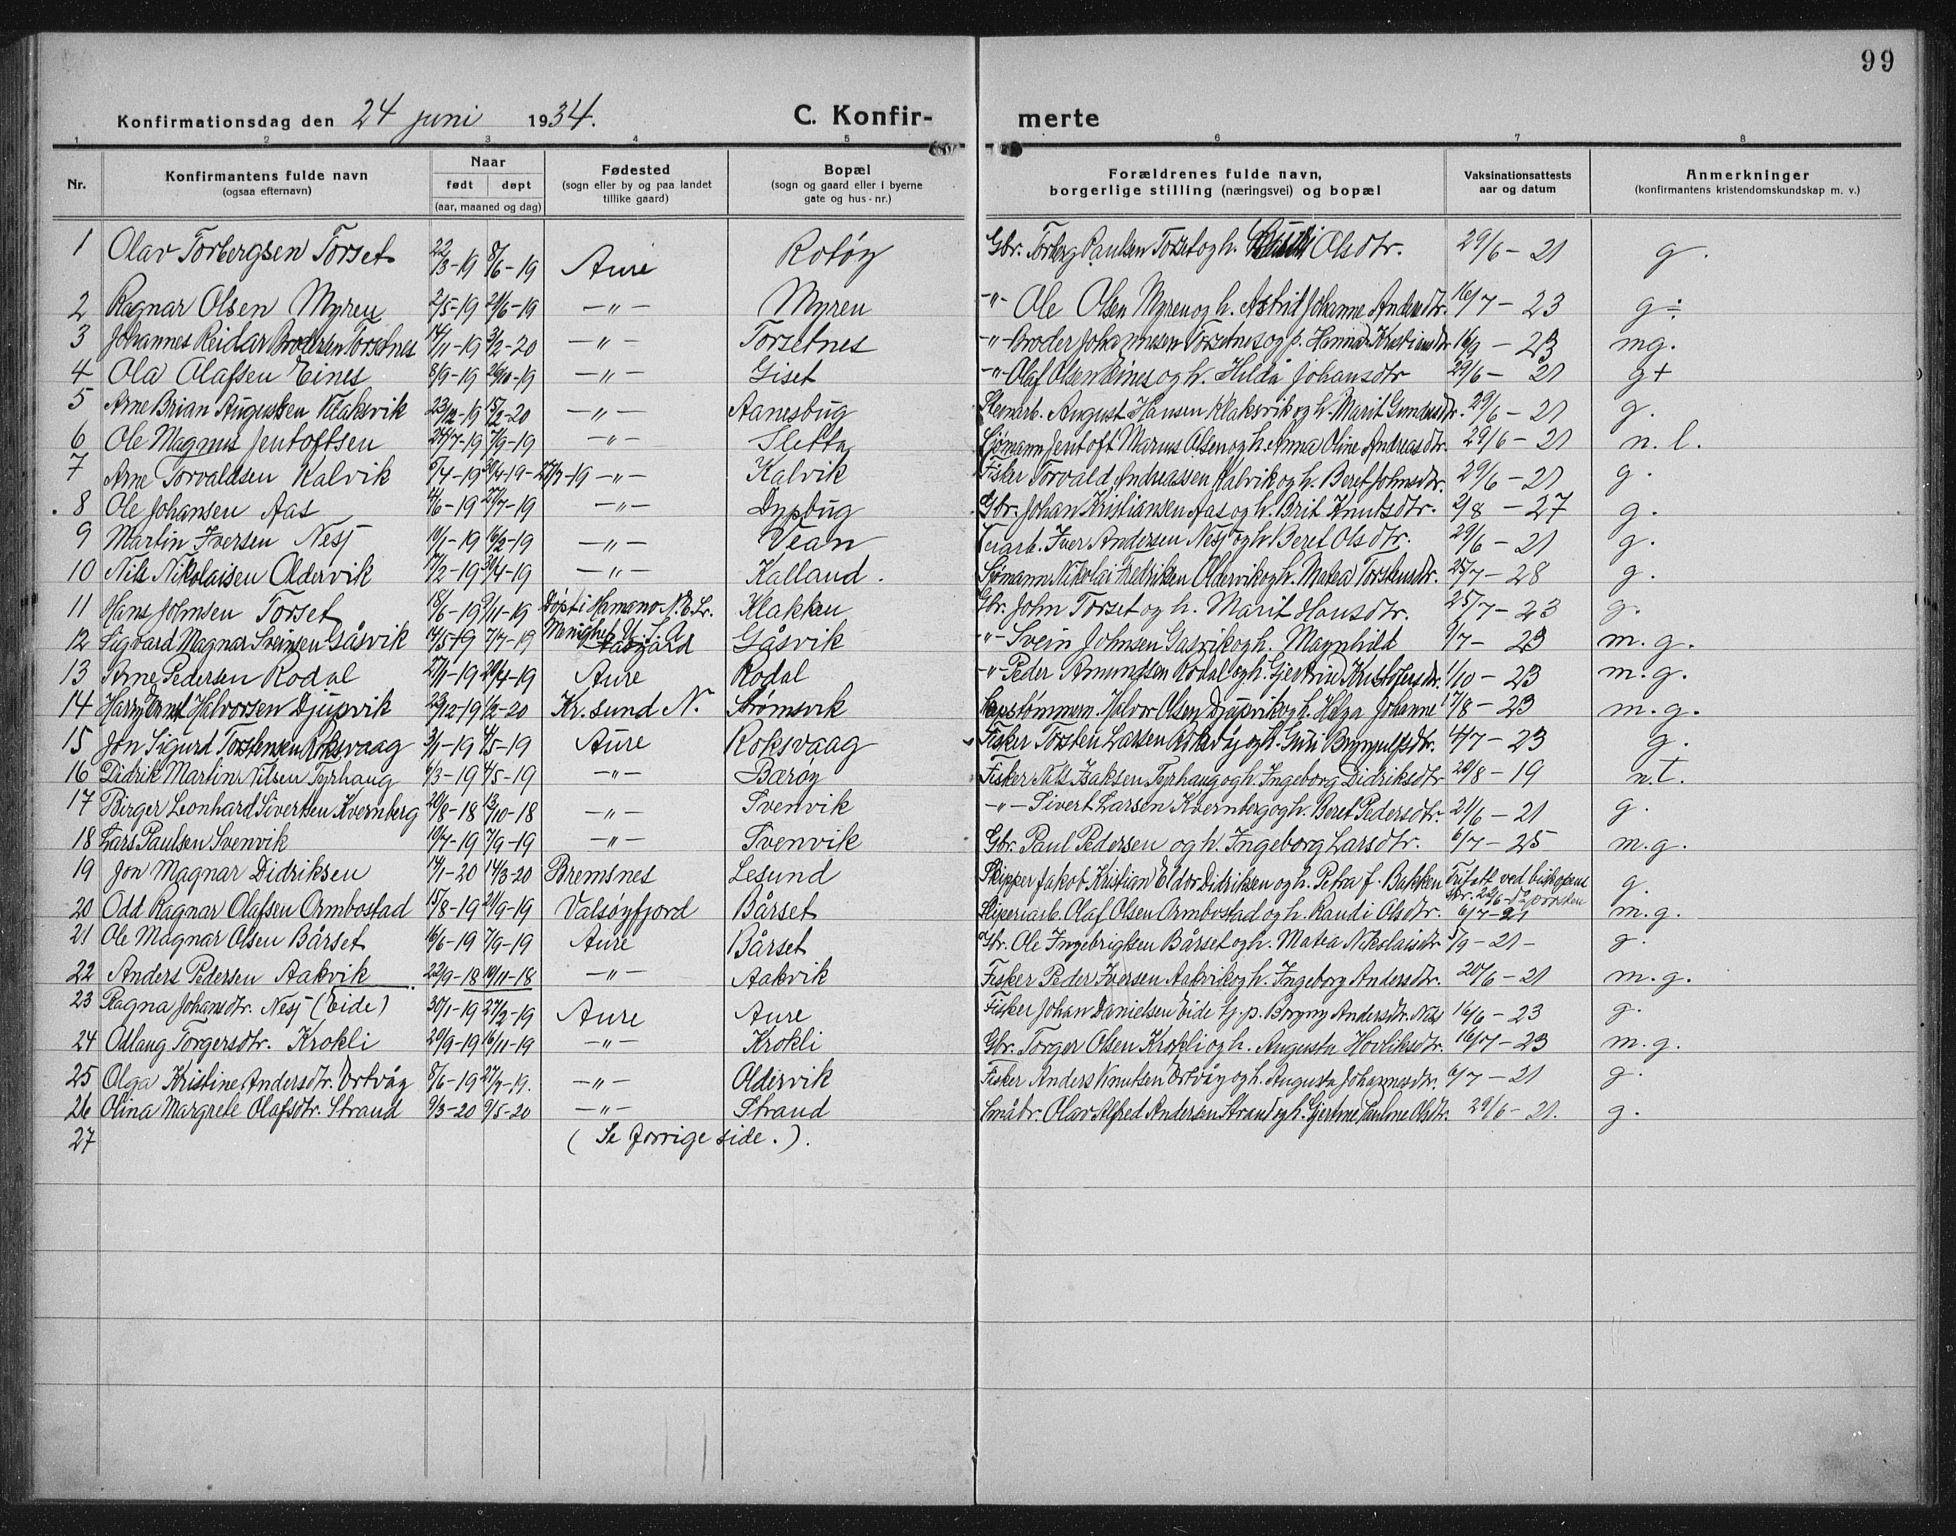 99
Konfirmationsdag den 24 juni 1934. C. Konfir- merte
1 2 3 4 5 6 7 8
Nr. Konfirmantens fulde navn (ogsaa efternavn) Naar født døpt (aar, maaned og dag) Fødested (sogn eller by og paa landet tillike gaard) Bopæl (sogn og gaard eller i byerne gate og hus-nr.) Forældrenes fulde navn, borgerlige stilling (næringsvei) og bopæl Vaksinationsattests aar og datum Anmerkninger (konfirmantens kristendomskundskap m. v.)
1 Olav Torbergsen Torset 22/3-19 8/6-19 Aure Rotøy Gbr. Torberg Paulsen Torset og h. Olsdtr. 29/6-21 g.
2 Ragnar Olsen Myren 2/5-19 29/6-19 -"- Myren -"- Ole Olsen Myren og h. Astrid Johanne Andersdtr. 16/7-23 g÷
3 Johannes Reidar Brodersen Torsetnes 14/11-19 3/2-20 -"- Torsetnes -"- Broder Johannesen Torsetnes og p. Hanna Kristiansdtr 16/9-23 mg.
4 Ola Olafsen Eines 8/9-19 26/10-19 -"- Giset -"- Olaf Olsen Eines og h. Hilda Johansdtr 29/6-21 g+
5 Arne Brian Augustsen Klaksvik 23/12-19 15/2-20 -"- Aanesbug Stenarb. August Hansen Klaksvik og h. Marit Gundersdtr. 29/6-21 g.
6 Ole Magnus Jentoftsen 24/7-19 7/9-19 -"- Sletta Sjømann Jentoft Marius Olsen og h. Anna Oline Andreasdtr. 29/6-21 n.l.
7 Arne Torvaldsen Kalvik 5/4-19 30/4-19-27/7-19 -"- Kalvik Fisker Torvald Andreassen Kalvik og h. Beret Johnsdtr. 29/6-21 g.
8 Ole Johansen Aas 4/6-19 27/7-19 -"- Dypbug Gbr. Johan Kristiansen Aas og h. Brit Knutsdtr. 2/8-27 g.
9 Martin Iversen Nesj 10/1-19 16/2-19 -"- Vean Veiarb. Iver Andersen Nesj og h. Beret Olsdtr. 29/6-21 g.
10 Nils Nikolaisen Oldervik 17/2-19 30/4-19 -"- Kalland. Sjømann Nikolai Fredriksen Oldervik og h. Matea Torstensdtr. 25/7-28 g.
11 Hans Johnsen Torset 18/6-19 9/11-19 Døpt i Hamano N.E.Lr. Klakken Gbr. John Torset og h. Marit Hansdtr. 25/7-23 g.
12 Sigvard Magnar Sveinsen Gåsvik 14/5-19 7/7-19 Menighet U.S.A. Gåsvik -"- Svein Johnsen Gåsvik og h. Magnhild 9/7-23 m.g.
13 Arne Pedersen Rodal 27/1-19 20/4-19 Aure Rodal -"- Peder Amundsen Rodal og h. Gjertrud Kristofersdtr. 1/10-23 m.g.
14 Harry Ernst Halvorsen Djupvik 23/12-19 1/2-20 Kr.sund N. Strømsvik Halvor Olsen Djupvik og h. Helga Johanne 17/8-23 m.g.
15 Jon Sigurd Torstensen Roksvaag 3/1-19 4/5-19 Aure Roksvaag Fisker Torsten Larsen Roksvåg og h. Guri Brynjulfsdtr. 4/7-23 g.
16 Didrik Martin Nilsen Tyrhaug 1/3-19 4/5-19 -"- Bærøy Fisker Nils Isaksen Tyrhaug og h. Ingeborg Didriksdtr 20/8-19 n.t.
17 Birger Leonhard Sivertsen Kvernberg 20/8-18 13/10-18 -"- Svenvik -"- Sivert Larsen Kvernberg og h. Beret Pedersdtr. 21/6-21 g.
18 Lars Paulsen Svenvik 10/7-19 7/9-19 -"- Svenvik Gbr. Paul Pedersen og h. Ingeborg Larsdtr. 6/7-25 m.g.
19 Jon Magnar Didriksen 14/1-20 14/3-20 Bremsnes Lesund Skipper Jakob Kristian Eldor Didriksen og h. Petra f. Bakken Fritatt ved biskopens skr. 22/6-d. prosten g.
20 Odd Ragnar Olafsen Ormbostad 15/8-19 21/9-19 Valsøyfjord Bårset Sliperiarb. Olaf Olsen Ormbostad og h. Randi Olsdtr. 6/7-21 m.g.
21 Ole Magnar Olsen Bårset 16/6-19 7/9-19 Aure Bårset Gbr. Ole Ingebrigtsen Bårset og h. Matea Nikolaisdtr 5/9-21- g.
22 Anders Pedersen Aakvik 22/9-18 10/11-18 -"- Aakvik Fisker Peder Iversen Aakvik og h. Ingeborg Andersdtr. 20/6-21 m.g.
23 Ragna Johansdtr. Nesj (Eide) 30/1-19 27/2-19 Aure Aure Fisker Johan Danielsen Eide og p. Bryny Andersdtr. Nesj 16/6-23 g.
24 Odlaug Torgersdtr. Krokli 29/9-19 16/11-19 -"- Krokli Gbr. Torger Olsen Krokli og h. Augusta Hovliksdtr. 16/7-23 m.g.
25 Olga Kristine Andersdtr. Ortvåg 8/6-19 27/7-19. -"- Oldervik Fisker Anders Knutsen Ortvåg og h. Augusta Johannesdtr. 6/7-21 g.
26 Olina Margrete Olafsdtr. Strand 9/3-20 9/5-20 -"- Strand Småbr. Olav Alfred Andersen Strand og h. Gjertine Pauline Olsdtr. 29/6-21. g.
27 (Se forrige side.).